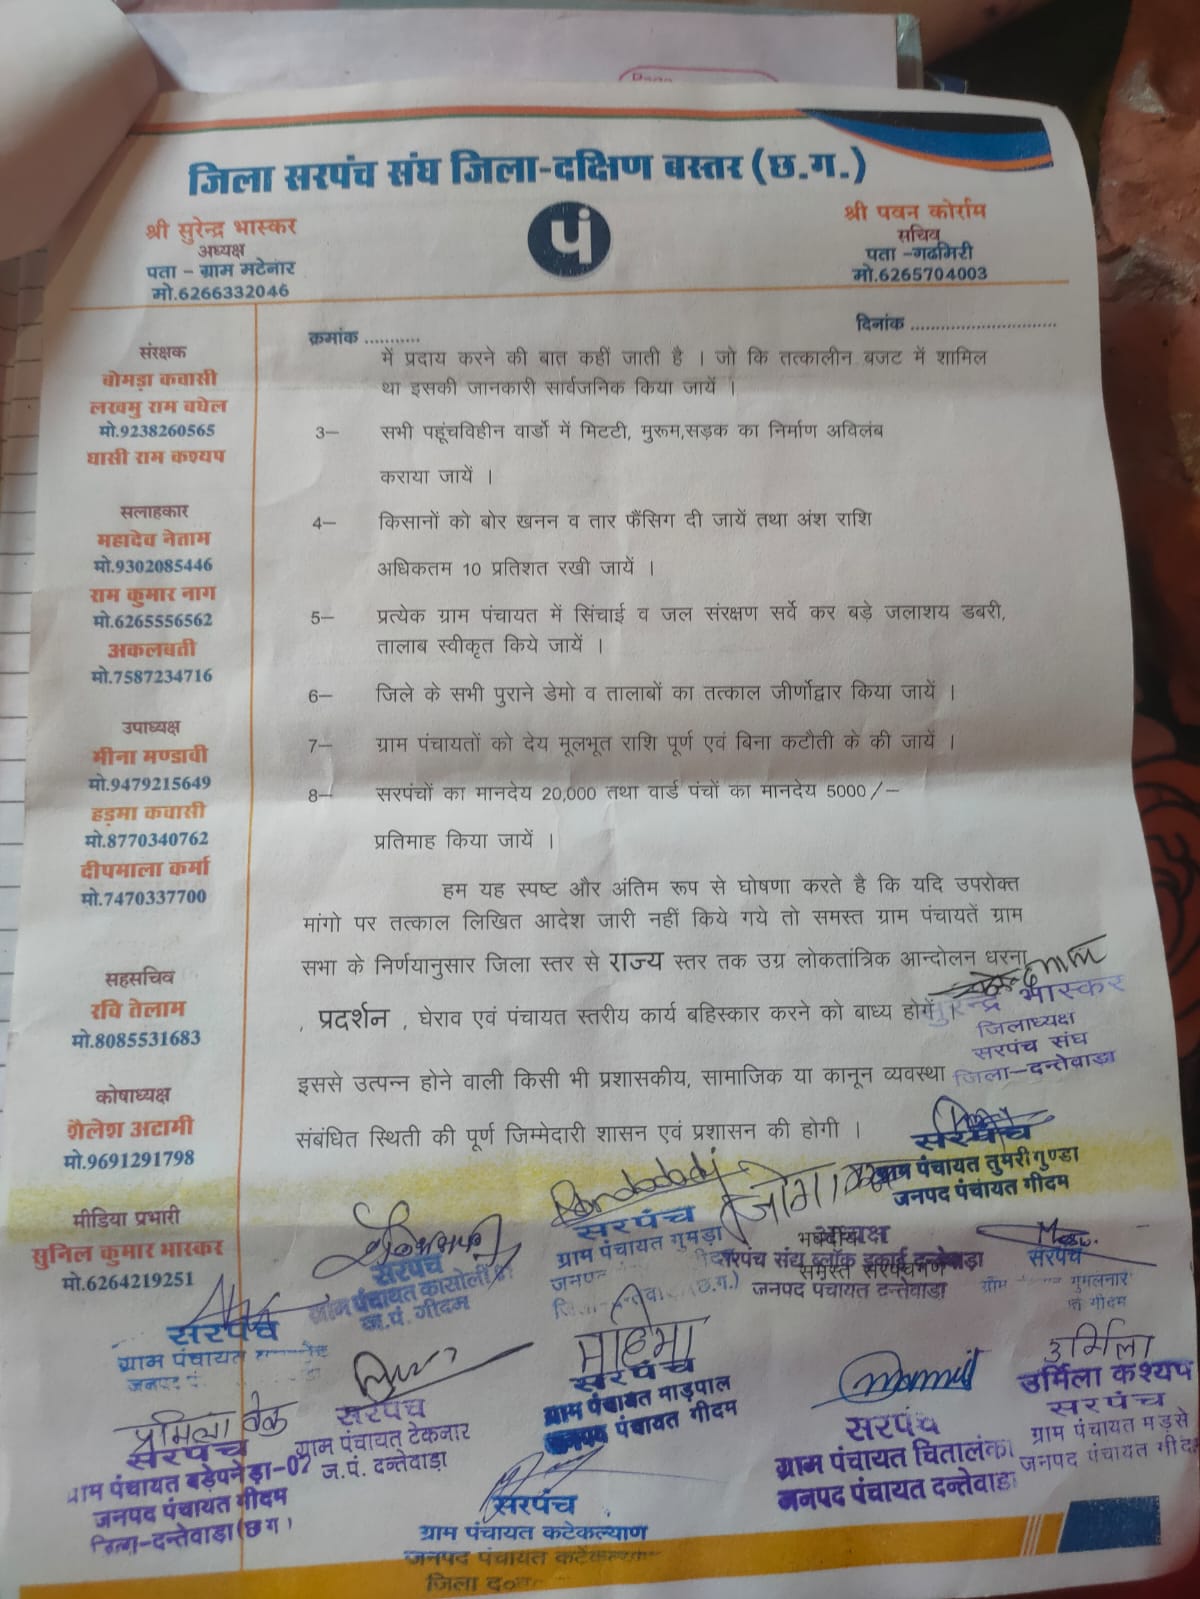 जिला सरपंच संघ जिला-दक्षिण बस्तर (छ.ग.)
श्री सुरेन्द्र भास्कर
अध्यक्ष
पता - ग्राम मटेनार
मो.6266332046
पं
श्री पवन कोर्राम
सचिव
पता -गढमिरी
मो.6265704003
क्रमांक ...........
दिनांक .............................
संरक्षक
बोमड़ा कवासी
लखमु राम बघेल
मो.9238260565
घासी राम कश्यप
सलाहकार
महादेव नेताम
मो.9302085446
राम कुमार नाग
मो.6265556562
अकलबती
मो.7587234716
उपाध्यक्ष
मीना मण्डावी
मो.9479215649
हड़मा कवासी
मो.8770340762
दीपमाला कर्मा
मो.7470337700
सहसचिव
रवि तेलाम
मो.8085531683
कोषाध्यक्ष
शैलेश अटामी
मो.9691291798
मीडिया प्रभारी
सुनिल कुमार भास्कर
मो.6264219251
में प्रदाय करने की बात कहीं जाती है । जो कि तत्कालीन बजट में शामिल
था इसकी जानकारी सार्वजनिक किया जायें ।
3— सभी पहूंचविहीन वार्डो में मिटटी, मुरूम,सड़क का निर्माण अविलंब
कराया जायें ।
4— किसानों को बोर खनन व तार फैंसिग दी जायें तथा अंश राशि
अधिकतम 10 प्रतिशत रखी जायें ।
5— प्रत्येक ग्राम पंचायत में सिंचाई व जल संरक्षण सर्वे कर बड़े जलाशय डबरी,
तालाब स्वीकृत किये जायें ।
6— जिले के सभी पुराने डेमो व तालाबों का तत्काल जीर्णोद्वार किया जायें ।
7— ग्राम पंचायतों को देय मूलभूत राशि पूर्ण एवं बिना कटौती के की जायें ।
8— सरपंचों का मानदेय 20,000 तथा वार्ड पंचों का मानदेय 5000/—
प्रतिमाह किया जायें ।
हम यह स्पष्ट और अंतिम रूप से घोषणा करते है कि यदि उपरोक्त
मांगो पर तत्काल लिखित आदेश जारी नहीं किये गये तो समस्त ग्राम पंचायतें ग्राम
सभा के निर्णयानुसार जिला स्तर से राज्य स्तर तक उग्र लोकतांत्रिक आन्दोलन धरना
, प्रदर्शन , घेराव एवं पंचायत स्तरीय कार्य बहिस्कार करने को बाध्य होगें ।
इससे उत्पन्न होने वाली किसी भी प्रशासकीय, सामाजिक या कानून व्यवस्था
संबंधित स्थिती की पूर्ण जिम्मेदारी शासन एवं प्रशासन की होगी ।
सुरेन्द्र भास्कर
जिलाध्यक्ष
सरपंच संघ
जिला—दन्तेवाड़ा
सरपंच
ग्राम पंचायत तुमरीगुण्डा
जनपद पंचायत गीदम
सरपंच
ग्राम पंचायत कासोली
ज.पं. गीदम
सरपंच
ग्राम पंचायत गुमड़ा
जनपद
(छ.ग.)
अध्यक्ष
सरपंच संघ ब्लॉक इकाई दन्तेवाड़ा
समस्त सरपंचगण
जनपद पंचायत दन्तेवाड़ा
सरपंच
ग्राम गुमलनार
गीदम
सरपंच
ग्राम पंचायत
जनपद
सरपंच
ग्राम पंचायत टेकनार
ज.पं. दन्तेवाड़ा
महिमा
सरपंच
ग्राम पंचायत माड़पाल
जनपद पंचायत गीदम
सरपंच
ग्राम पंचायत चितालंका
जनपद पंचायत दन्तेवाडा
उर्मिला
उर्मिला कश्यप
सरपंच
ग्राम पंचायत मड़से
जनपद पंचायत गीद
प्रमिला
सरपंच
ग्राम पंचायत बड़ेपनेड़ा-02
जनपद पंचायत गीदम
जिला-दन्तेवाड़ा (छ ग )
सरपंच
ग्राम पंचायत कटेकल्याण
जनपद पंचायत कटेकल्याण
जिला